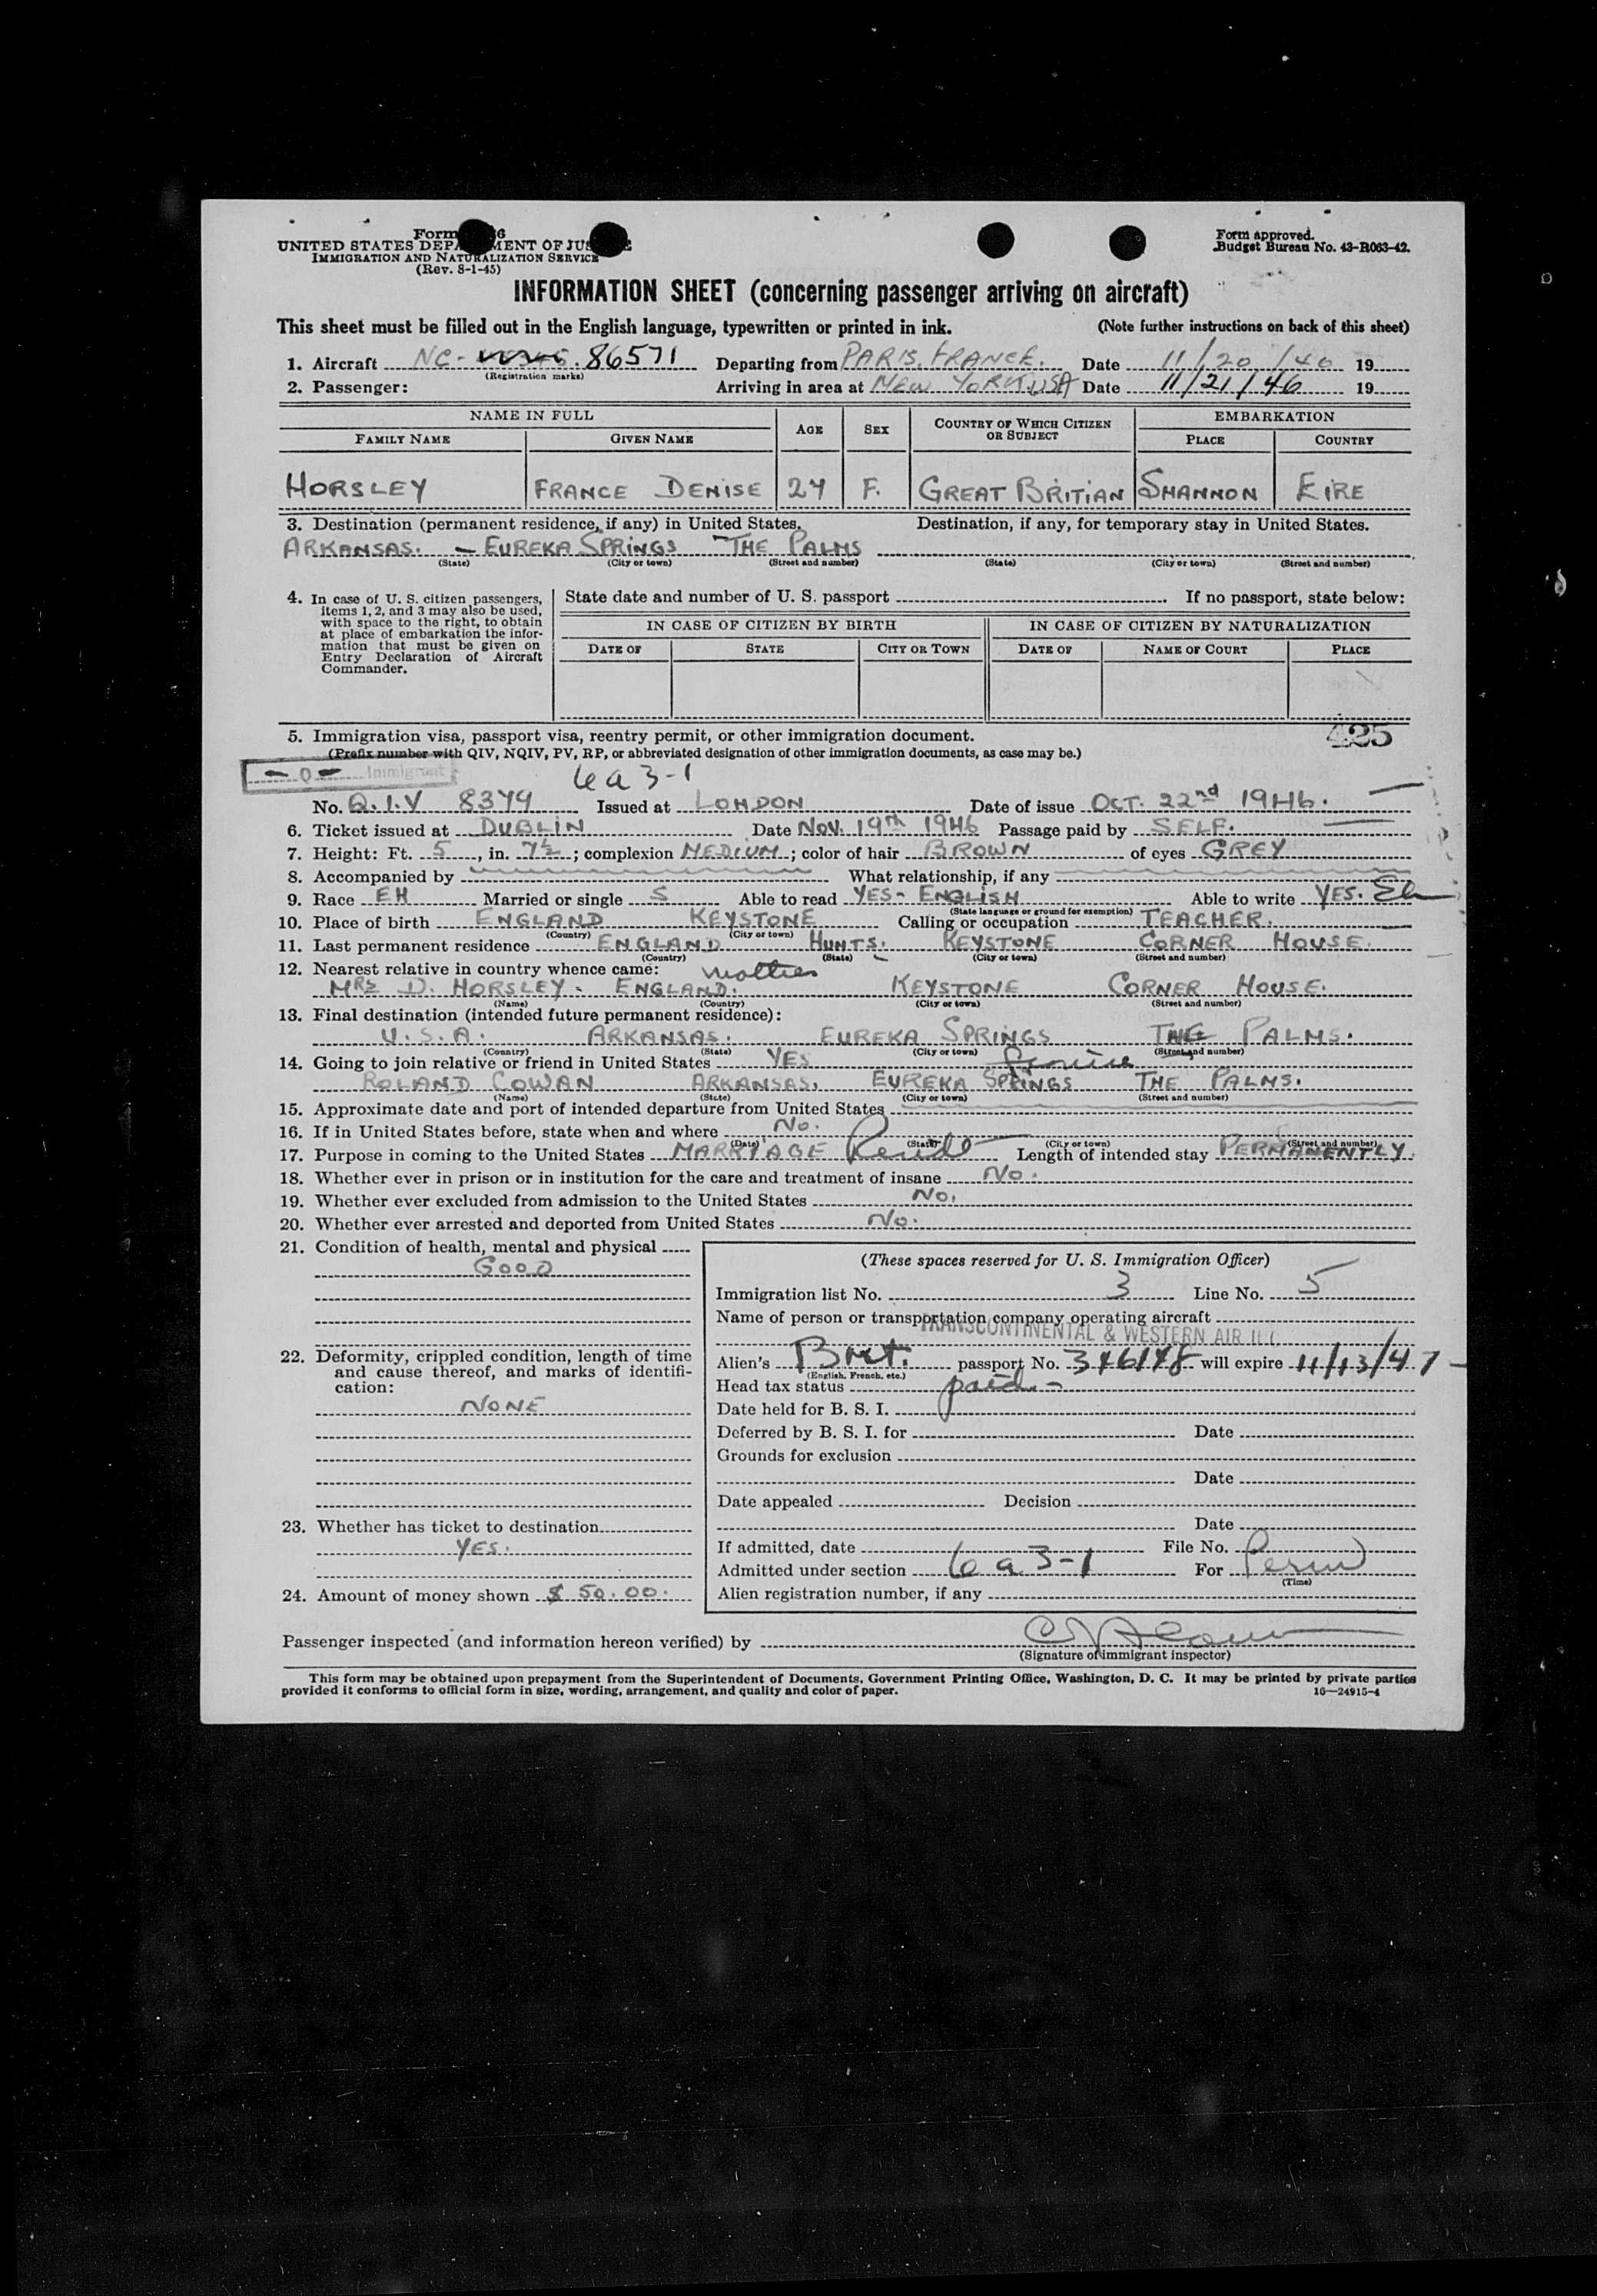 Form
UNITED STATES DEPARTMENT OF JUSTICE
IMMIGRATION AND NATURALIZATION SERVICE
(Rev. 8-1-45)
Form approved.
Budget Bureau No. 43-R063-42.
INFORMATION SHEET (concerning passenger arriving on aircraft)
This sheet must be filled out in the English language, typewritten or printed in ink. (Note further instructions on back of this sheet)
1. Aircraft NC- 86571 Departing from PARIS, FRANCE. Date 11/20/46 19
(Registration marks)
2. Passenger: Arriving in area at NEW YORK USA Date 11/21/46 19
NAME IN FULL AGE SEX COUNTRY OF WHICH CITIZEN OR SUBJECT EMBARKATION
FAMILY NAME GIVEN NAME PLACE COUNTRY
HORSLEY FRANCE DENISE 24 F. GREAT BRITIAN SHANNON EIRE
3. Destination (permanent residence, if any) in United States. Destination, if any, for temporary stay in United States.
ARKANSAS. - EUREKA SPRINGS - THE PALMS
(State) (City or town) (Street and number) (State) (City or town) (Street and number)
4. In case of U. S. citizen passengers, items 1, 2, and 3 may also be used, with space to the right, to obtain at place of embarkation the information that must be given on Entry Declaration of Aircraft Commander.
State date and number of U. S. passport If no passport, state below:
IN CASE OF CITIZEN BY BIRTH IN CASE OF CITIZEN BY NATURALIZATION
DATE OF STATE CITY OR TOWN DATE OF NAME OF COURT PLACE
425
5. Immigration visa, passport visa, reentry permit, or other immigration document.
(Prefix number with QIV, NQIV, PV, RP, or abbreviated designation of other immigration documents, as case may be.)
- Q - Immigrant
6 a 3-1
No. Q.I.V 8379 Issued at LONDON Date of issue OCT. 22nd 1946.
6. Ticket issued at DUBLIN Date NOV. 19th 1946 Passage paid by SELF.
7. Height: Ft. 5, in. 7½; complexion MEDIUM; color of hair BROWN of eyes GREY
8. Accompanied by What relationship, if any
9. Race EH Married or single S Able to read YES - ENGLISH Able to write YES.
(State language or ground for exemption)
10. Place of birth ENGLAND KEYSTONE Calling or occupation TEACHER.
(Country) (City or town)
11. Last permanent residence ENGLAND HUNTS. KEYSTONE CORNER HOUSE.
(Country) (State) (City or town) (Street and number)
12. Nearest relative in country whence came: mother
MRS D. HORSLEY - ENGLAND. KEYSTONE CORNER HOUSE.
(Name) (Country) (City or town) (Street and number)
13. Final destination (intended future permanent residence):
U.S.A. ARKANSAS. EUREKA SPRINGS THE PALMS.
(Country) (State) (City or town) (Street and number)
14. Going to join relative or friend in United States YES
ROLAND COWAN ARKANSAS, EUREKA SPRINGS THE PALMS.
(Name) (State) (City or town) (Street and number)
15. Approximate date and port of intended departure from United States
16. If in United States before, state when and where No.
(Date) (State) (City or town) (Street and number)
17. Purpose in coming to the United States MARRIAGE Length of intended stay PERMANENTLY.
18. Whether ever in prison or in institution for the care and treatment of insane No.
19. Whether ever excluded from admission to the United States No.
20. Whether ever arrested and deported from United States No.
21. Condition of health, mental and physical
GOOD
22. Deformity, crippled condition, length of time and cause thereof, and marks of identification:
NONE
23. Whether has ticket to destination
YES.
24. Amount of money shown $ 50.00.
(These spaces reserved for U. S. Immigration Officer)
Immigration list No. 3 Line No. 5
Name of person or transportation company operating aircraft
TRANSCONTINENTAL & WESTERN AIR
Alien's Brit. passport No. will expire 11/13/47
(English, French, etc.)
Head tax status paid -
Date held for B. S. I.
Deferred by B. S. I. for Date
Grounds for exclusion
Date
Date appealed Decision
Date
If admitted, date File No.
Admitted under section 6 a 3-1 For Perm
(Time)
Alien registration number, if any
Passenger inspected (and information hereon verified) by
(Signature of immigrant inspector)
This form may be obtained upon prepayment from the Superintendent of Documents, Government Printing Office, Washington, D. C. It may be printed by private parties
provided it conforms to official form in size, wording, arrangement, and quality and color of paper. 16—24915-4